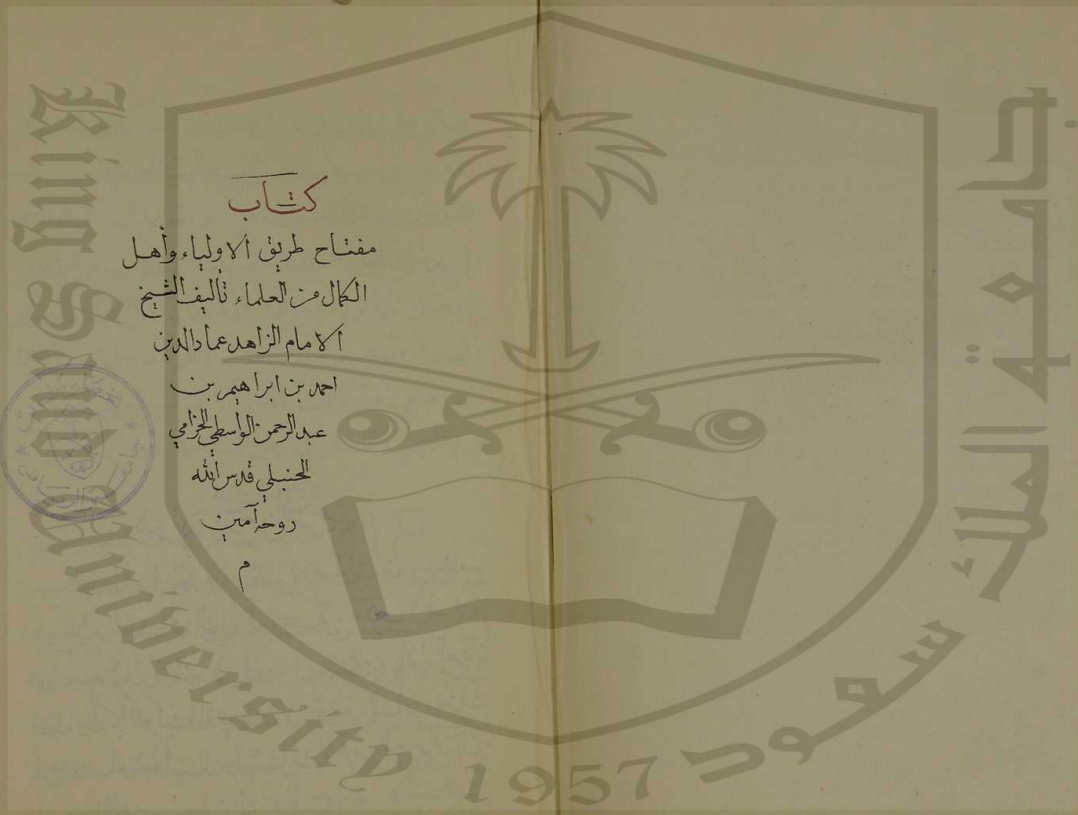 كتاب
مفتاح طريق الاولياء وأهل
الكمال من العلماء تأليف الشيخ
الامام الزاهد عماد الدين
احمد بن ابراهيم بن
عبد الرحمن الواسطي الحزامي
الحنبلي قدس الله
روحه آمين
م
King Saud University 1957
جامعة الملك سعود